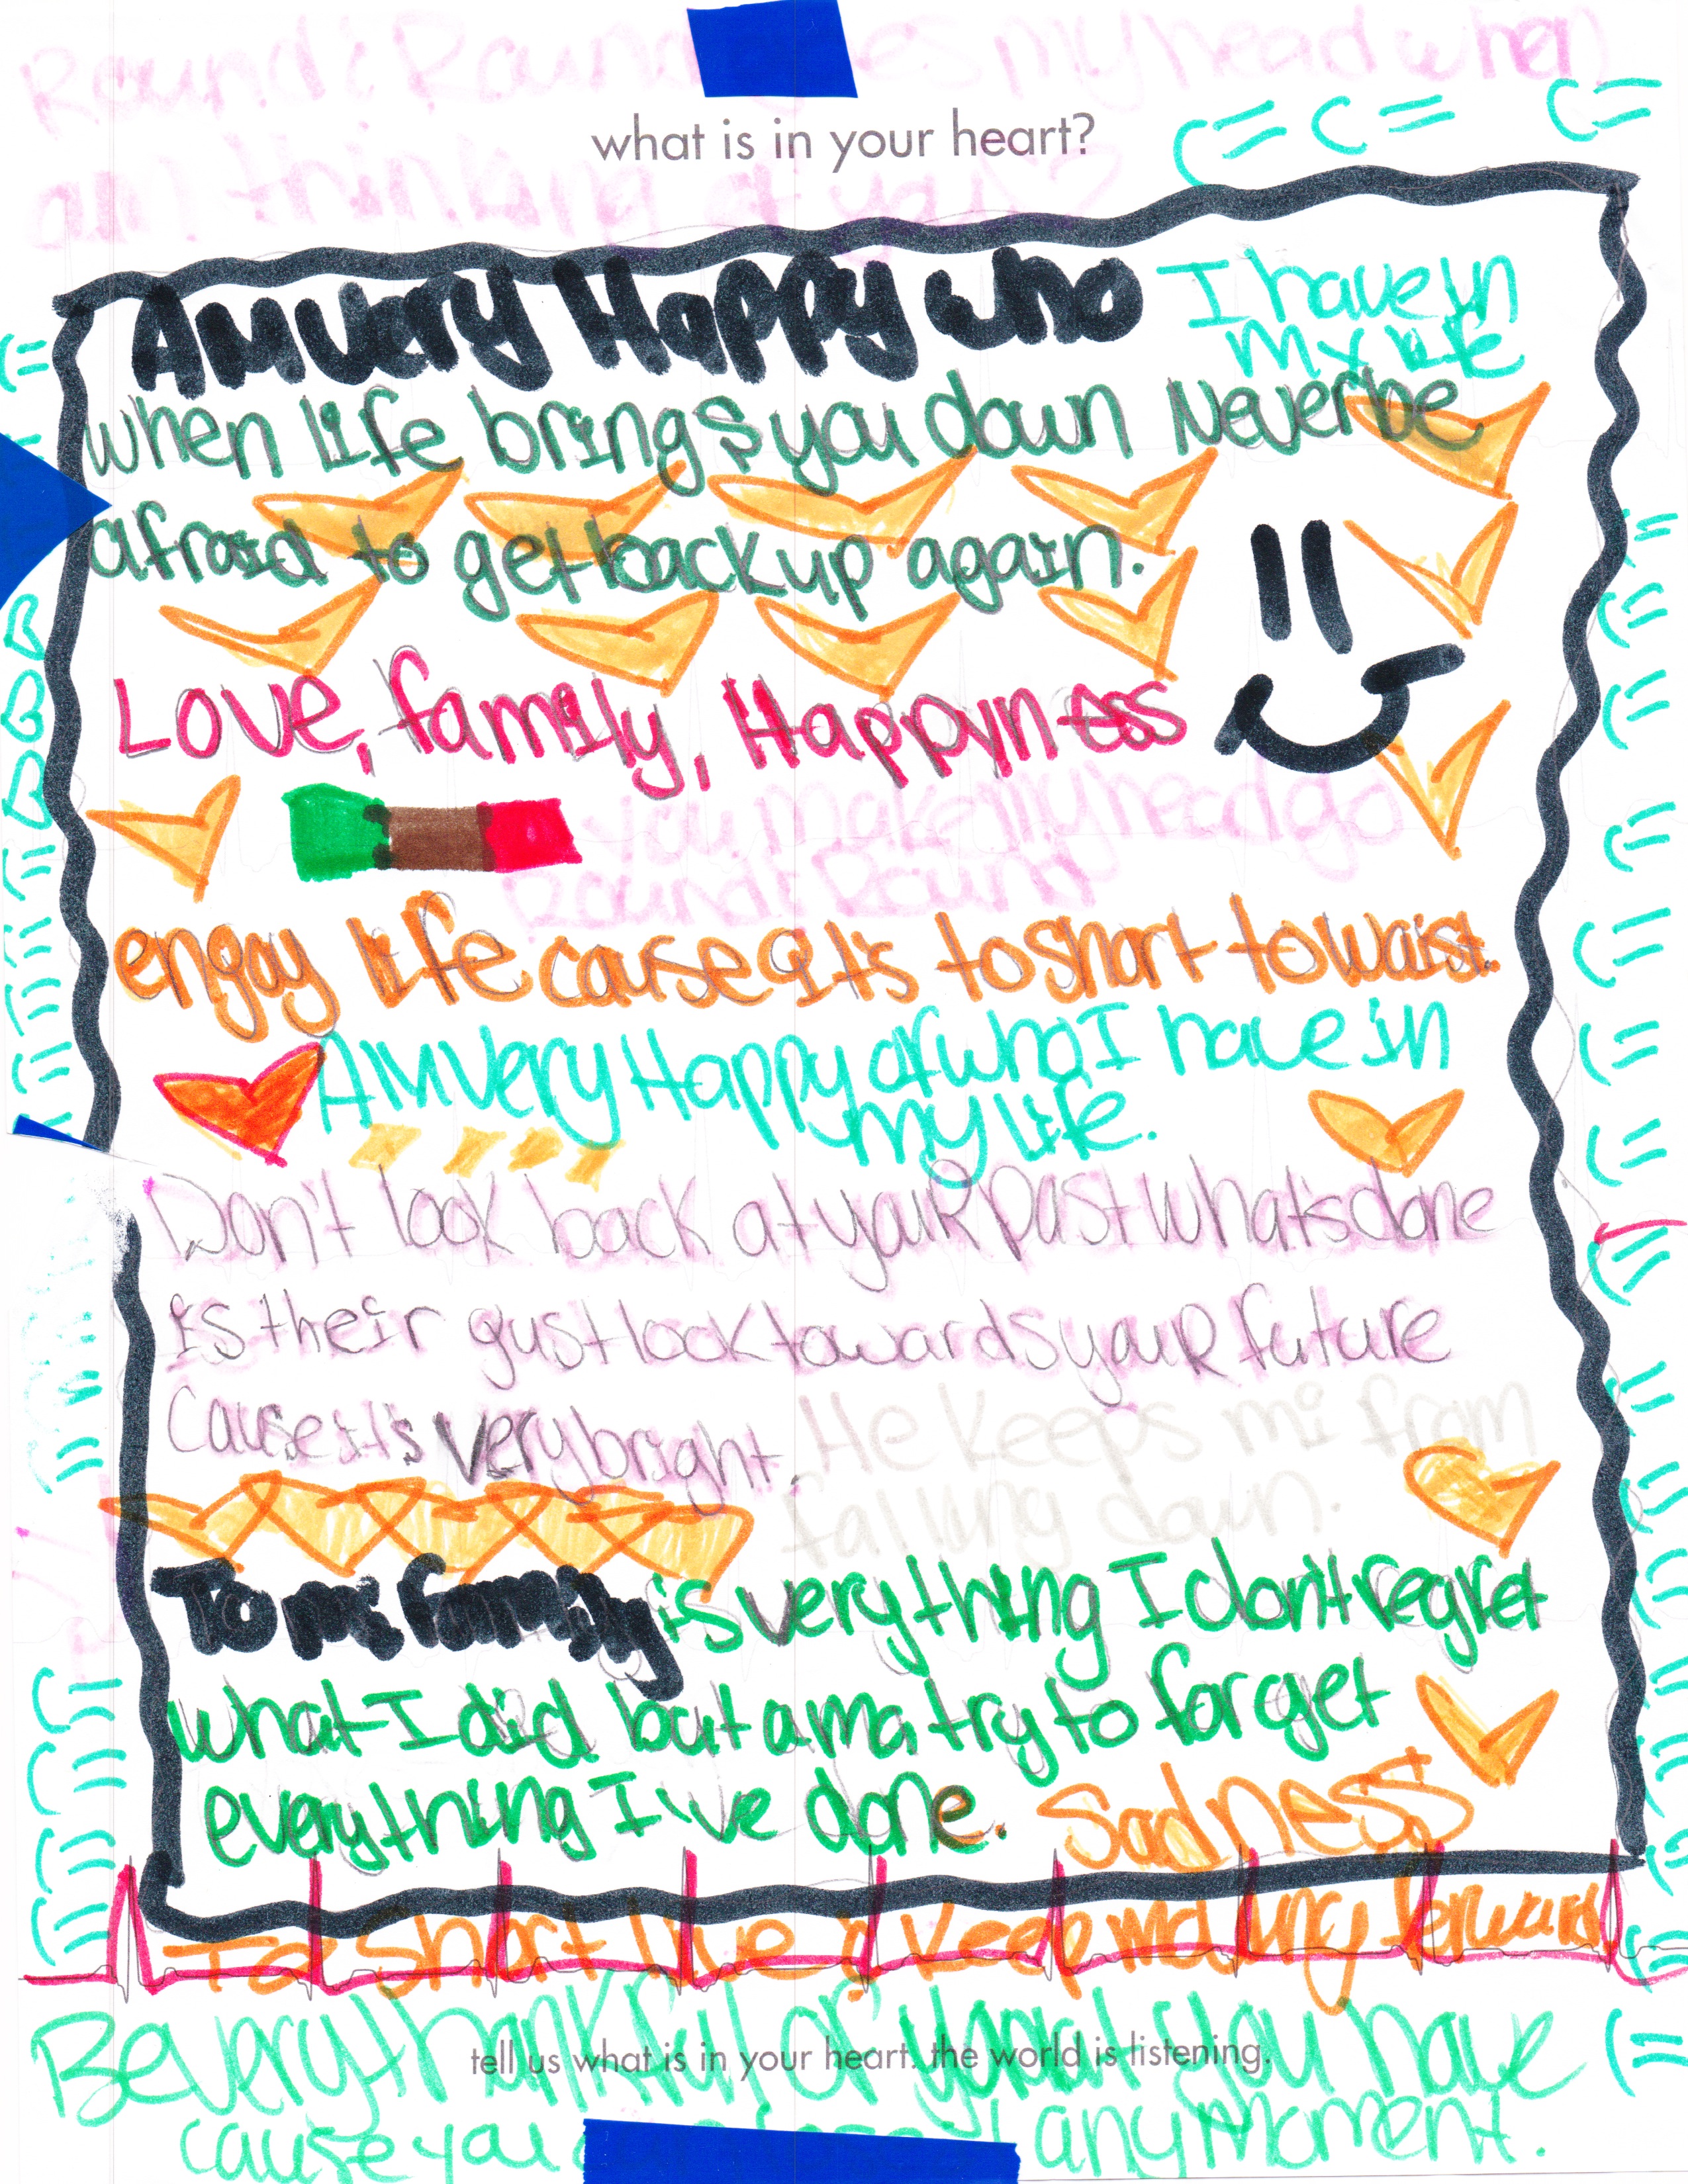 Round & Round es my head when
am thinking of you
what is in your heart?
Am very Happy who I have in
my life
when life brings you down Never be
afraid to get back up again.
Love, family, Happyness
you make my head go
Round & Round
engoy life cause it's to short to waist.
Am very Happy of who I have in
my life.
Don't look back at youR past what's done
is their gust look towards youR future
Cause it's very bright.
He keeps mi from
falling down.
To mi family is verything I don't regret
what I did but ama try to forget
everything I've done. Sadness
To short live keep moving forward
Be very thankful of what you have
tell us what is in your heart. the world is listening.
cause you any moment.